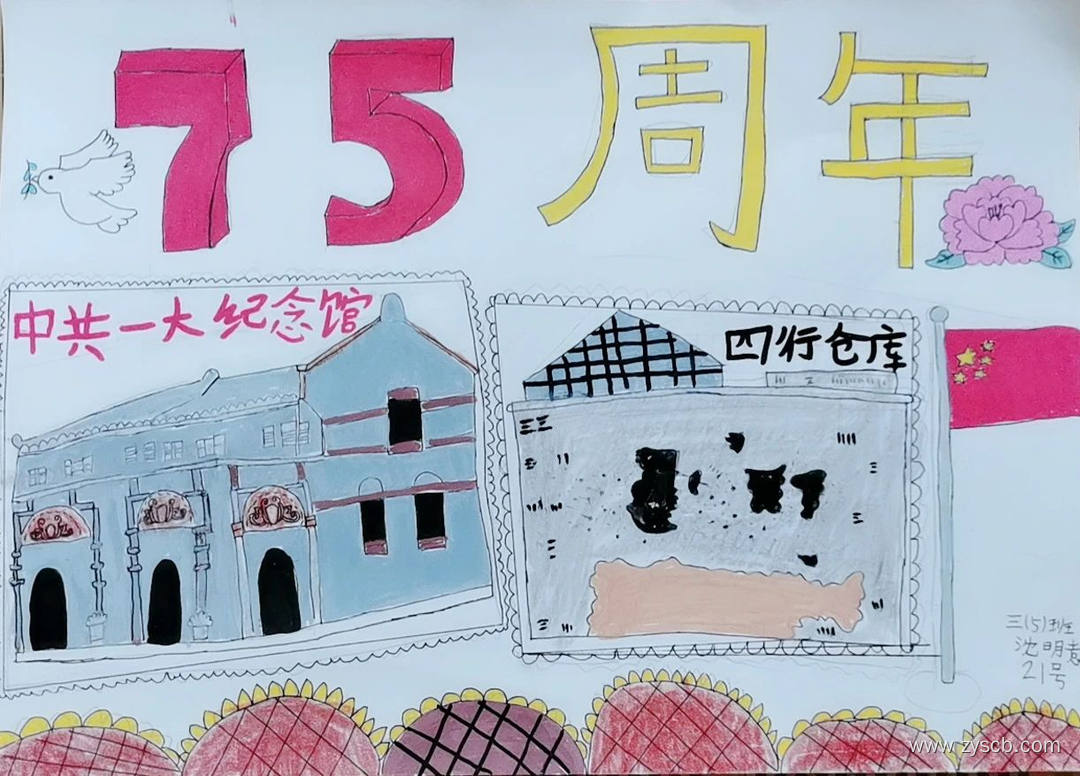 75周年
中共一大纪念馆
四行仓库
三(5)班
沈明意
21号
www.zyscb.com